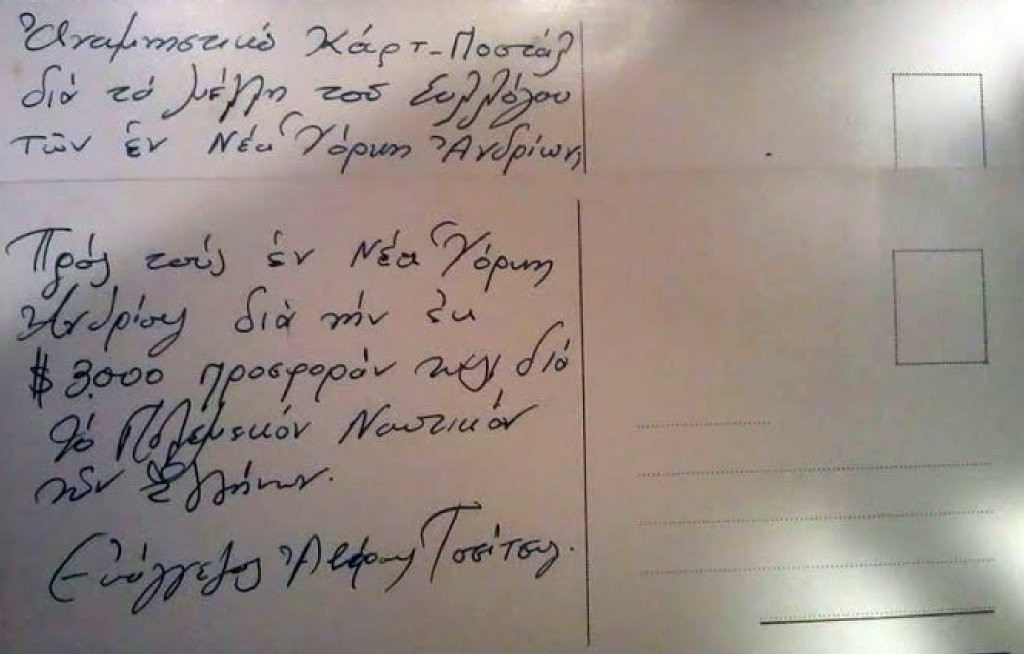 Ἀναμνηστικό Κάρτ-Ποστάλ
διά τά μέλη τοῦ Συλλόγου
τῶν ἐν Νέα Ὑόρκη Ἀνδρίων,
Πρός τούς ἐν Νέα Ὑόρκη
Ἀνδρίους διά τήν ἐκ
$ 3.000 προσφοράν των διά
τό Πολεμικόν Ναυτικόν
τῶν Ἑλλήνων.
Εὐάγγελος Τσίτσας.